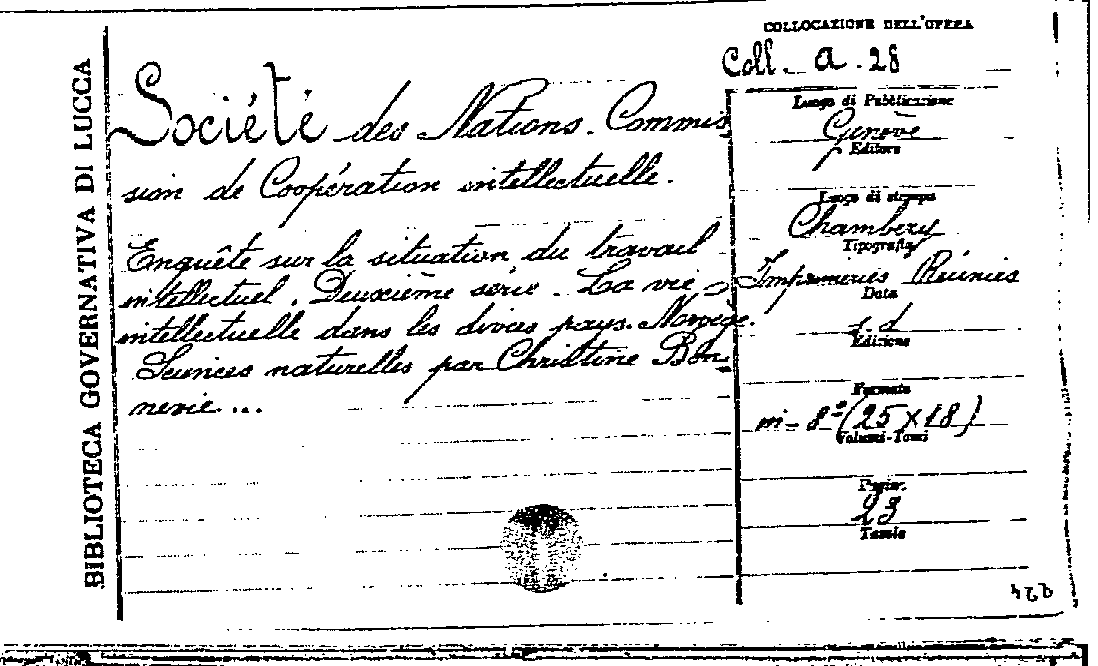 BIBLIOTECA GOVERNATIVA DI LUCCA
Société des Nations. Commis
sion de Coopération intellectuelle.
Enquête sur la situation du travail
intellectuel. Deuxième série. La vie
intellectuelle dans les divers pays. Norvège.
Sciences naturelles par Christine Bon=
nevie...
COLLOCAZIONE DELL'OPERA
Coll. a. 28
Luogo di Pubblicazione
Genève
Editore
Luogo di stampa
Chambéry
Tipografia
Imprimeries Réunies
Data
s. d
Edizione
Formato
in-8º (25X18)
Volumi-Tomi
Pagine
23
Tavole